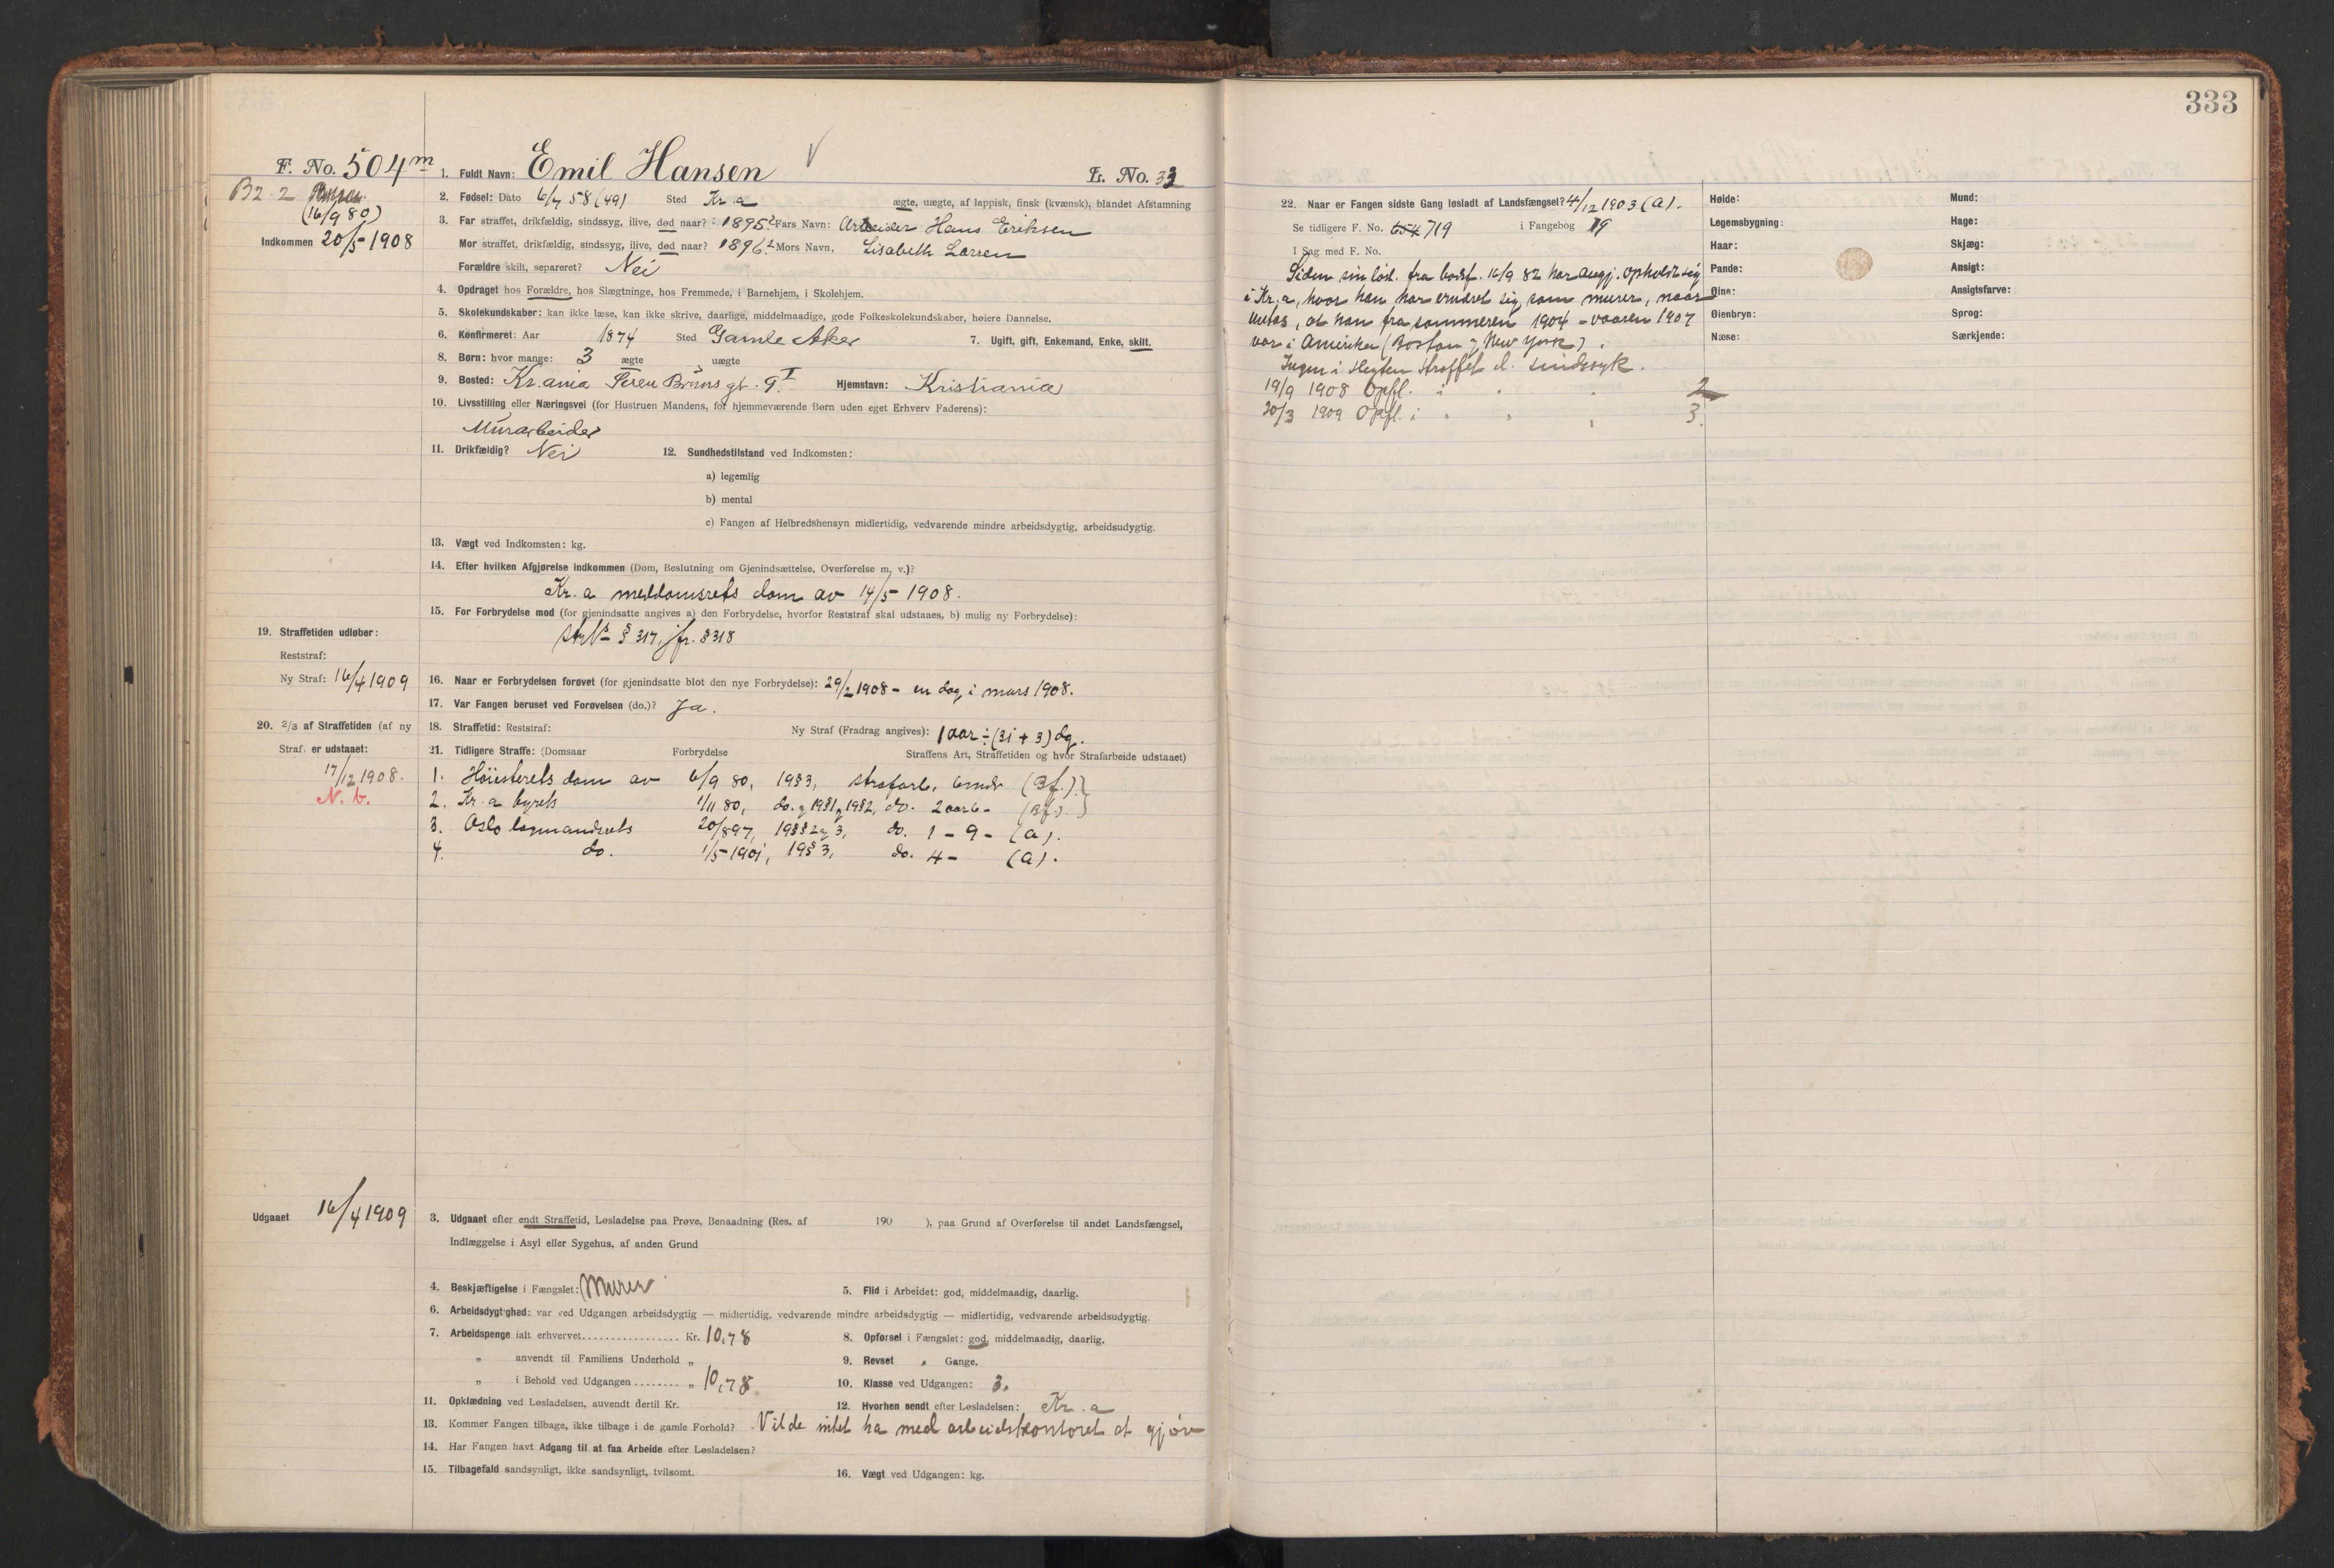 333
F. No. 504 m 1. Fuldt Navn: Emil Hansen L. No. 33
B2 2
(16/9 80)
Indkommen 20/5 1908
2. Fødsel: Dato 6/7 58 (49) Sted Kr.a ægte, uægte, af lappisk, finsk (kvænsk), blandet Afstamning
3. Far straffet, drikfældig, sindssyg, ilive, død naar? 1895? Fars Navn: Arbeider Hans Eriksen
Mor straffet, drikfældig, sindssyg, ilive, død naar? 1896? Mors Navn, Lisabeth Larsen
Forældre skilt, separeret? Nei
4. Opdraget hos Forældre, hos Slægtninge, hos Fremmede, i Barnehjem, i Skolehjem.
5. Skolekundskaber: kan ikke læse, kan ikke skrive, daarlige, middelmaadige, gode Folkeskolekundskaber, høiere Dannelse.
6. Konfirmeret: Aar 1874 Sted Gamle Aker 7. Ugift, gift, Enkemand, Enke, skilt.
8. Børn: hvor mange: 3 ægte uægte
9. Bosted: Kr.ania Søren Bruns gt. 9 I Hjemstavn: Kristiania
10. Livsstilling eller Næringsvei (for Hustruen Mandens, for hjemmeværende Børn uden eget Erhverv Faderens):
Murarbeider
11. Drikfældig? Nei 12. Sundhedstilstand ved Indkomsten:
a) legemlig
b) mental
c) Fangen af Helbredshensyn midlertidig, vedvarende mindre arbeidsdygtig, arbeidsudygtig.
13. Vægt ved Indkomsten: kg.
14. Efter hvilken Afgjørelse indkommen (Dom, Beslutning om Gjenindsættelse, Overførelse m. v.)?
Kr.a meddomsrets dom av 14/5 1908.
15. For Forbrydelse mod (for gjenindsatte angives a) den Forbrydelse, hvorfor Reststraf skal udstaaes, b) mulig ny Forbrydelse):
§ 317, jfr. § 318
19. Straffetiden udløber:
Reststraf:
Ny Straf: 16/4 1909
16. Naar er Forbrydelsen forøvet (for gjenindsatte blot den nye Forbrydelse): 29/2 1908 - en dag i mars 1908.
17. Var Fangen beruset ved Forøvelsen (do.)? Ja.
20. 2/3 af Straffetiden (af ny
Straf) er udstaaet:
17/12 1908.
N. b.
18. Straffetid: Reststraf: Ny Straf (Fradrag angives): 1 aar ÷ (31 + 3) dg.
21. Tidligere Straffe: (Domsaar Forbrydelse Straffens Art, Straffetiden og hvor Strafarbeide udstaaet)
1. Høiesterets dom av 6/9 80, 19 § 3, strafarb. 6 mdr (Bf.)
2. Kr.a byrets 1/11 80, do. 19 § 1 19 § 2, do. 2 aar 6 - (Bf).
3. Oslo lagmandsrets 20/8 97, 19 §§ 2 og 3, do. 1 - 9 - (a).
4. do. 1/5 1901, 19 § 3, do. 4 - (a).
Udgaaet 16/4 1909
3. Udgaaet efter endt Straffetid, Løsladelse paa Prøve, Benaadning (Res. af 190 ), paa Grund af Overførelse til andet Landsfængsel,
Indlæggelse i Asyl eller Sygehus, af anden Grund
4. Beskjæftigelse i Fængslet: Murer 5. Flid i Arbeidet: god, middelmaadig, daarlig.
6. Arbeidsdygtighed: var ved Udgangen arbeidsdygtig — midlertidig, vedvarende mindre arbeidsdygtig — midlertidig, vedvarende arbeidsudygtig.
7. Arbeidspenge ialt erhvervet................. Kr. 10,78 8. Opførsel i Fængslet: god, middelmaadig, daarlig.
„ anvendt til Familiens Underhold „ 9. Revset „ Gange.
„ i Behold ved Udgangen........ „ 10,78 10. Klasse ved Udgangen: 3.
11. Opklædning ved Løsladelsen, anvendt dertil Kr. 12. Hvorhen sendt efter Løsladelsen: Kr.a
13. Kommer Fangen tilbage, ikke tilbage i de gamle Forhold? Vilde intet ha med arbeidskontoret at gjøre
14. Har Fangen havt Adgang til at faa Arbeide efter Løsladelsen?
15. Tilbagefald sandsynligt, ikke sandsynligt, tvilsomt. 16. Vægt ved Udgangen: kg.
22. Naar er Fangen sidste Gang løsladt af Landsfængsel? 4/12 1903 (a).
Se tidligere F. No. 654 719 i Fangebog 19
I Sag med F. No.
Siden sin løsl. fra bodsf. 16/9 82 har angj. opholdt sig
i Kr.a, hvor han har ernæret sig som murer, naar
undtas, at han fra sommeren 1904 - vaaren 1907
var i Amerika (Boston og New York).
Ingen i slegten straffet el. sindssyk.
19/9 1908 Opfl. i " " 2
20/3 1909 Opfl. i " " " 3.
Høide: Mund:
Legemsbygning: Hage:
Haar: Skjæg:
Pande: Ansigt:
Øine: Ansigtsfarve:
Øienbryn: Sprog:
Næse: Særkjende: